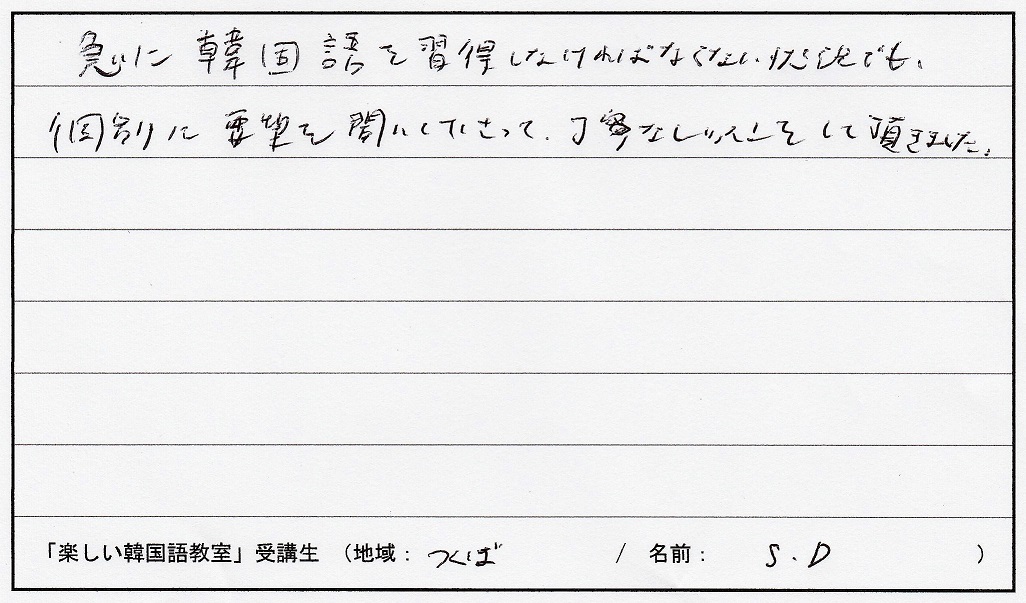 急に韓国語を習得しなければならない状況でも、
個別に要望を聞いてくださって、丁寧なレッスンをして頂きました。
「楽しい韓国語教室」受講生 （地域： つくば / 名前： S.D ）